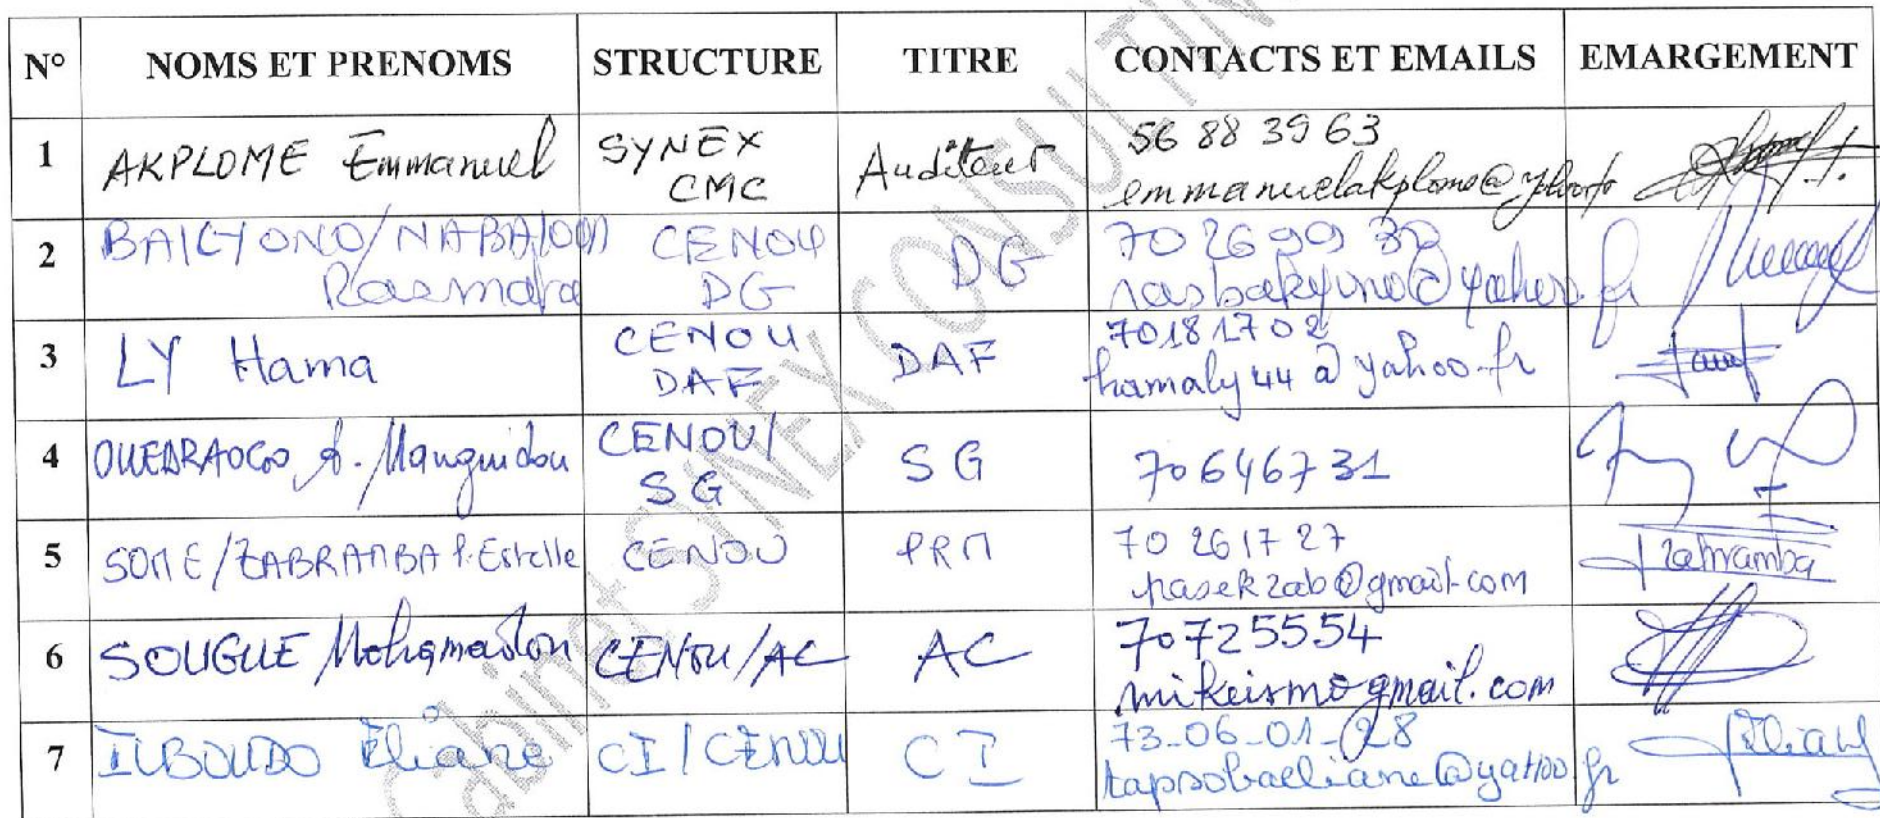 N° NOMS ET PRENOMS STRUCTURE TITRE CONTACTS ET EMAILS EMARGEMENT
1 AKPLOME Emmanuel SYNEX CMC Auditeur 56 88 39 63
emmanuelakplome@yahoo.fr
2 BAKYONO/NABALOUM CENOU DG 70 26 99 30
Rasmata DG rasbakyono@yahoo.fr
3 LY Hama CENOU DAF DAF 70181702
hamaly44@yahoo.fr
4 OUEDRAOGO A. Manguidou CENOU/ SG SG 70646731
5 SOME/ZABRAMBA P. Estelle CENOU PRM 70 26 17 27
pasekzab@gmail.com Zabramba
6 SOUGUE Mohamadou CENOU/AC AC 70725554
mikeismo gmail.com
7 ILBOUDO Eliane CI/CENOU CI 73-06-01-28
tapsobaeliane@yahoo fr
Cabinet SYNEX CONSULTIN